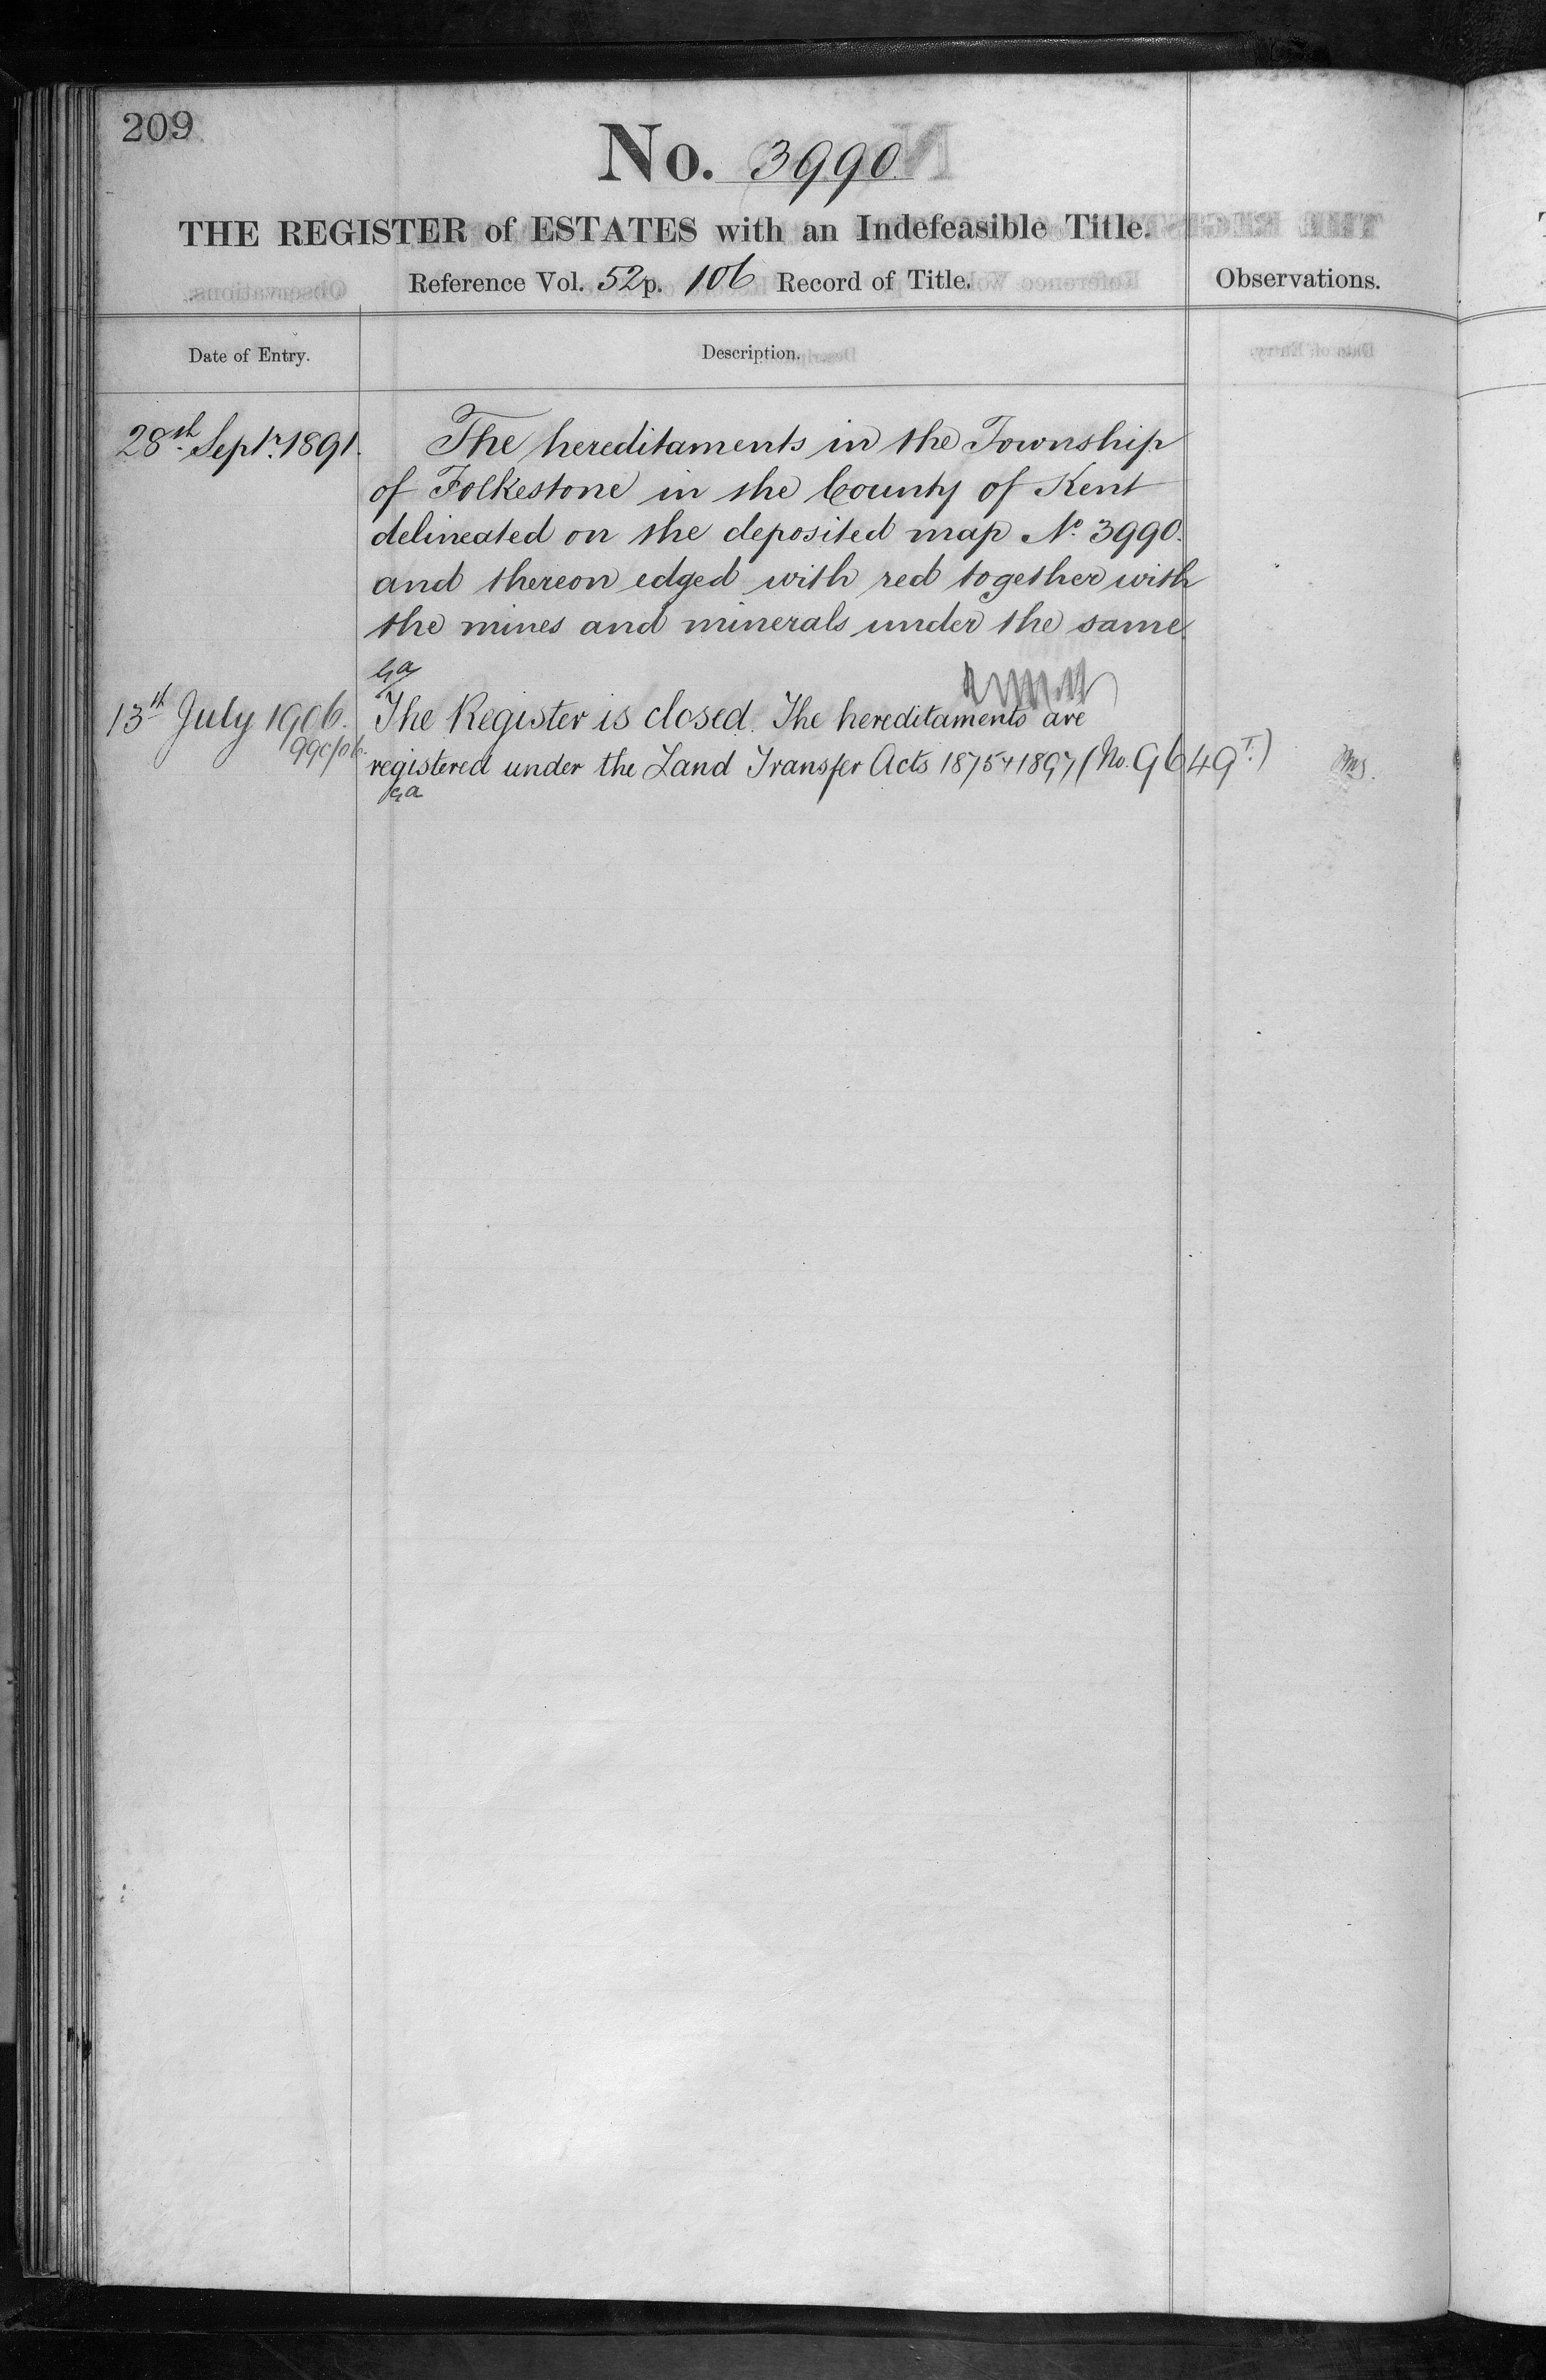 209
No. 3990
THE REGISTER of ESTATES with an Indefeasible Title.
Reference Vol. 52 p. 106 Record of Title.
Observations.
Date of Entry.
Description.
28th Septr. 1891.
The hereditaments in the Township
of Folkestone in the County of Kent
delineated on the deposited map No. 3990.
and thereon edged with red together with
the mines and minerals under the same.
Ga
13th July 1906.
The Register is closed. The hereditaments are
registered under the Land Transfer Acts 1875 & 1897 (No. 9649 T.)
Ga